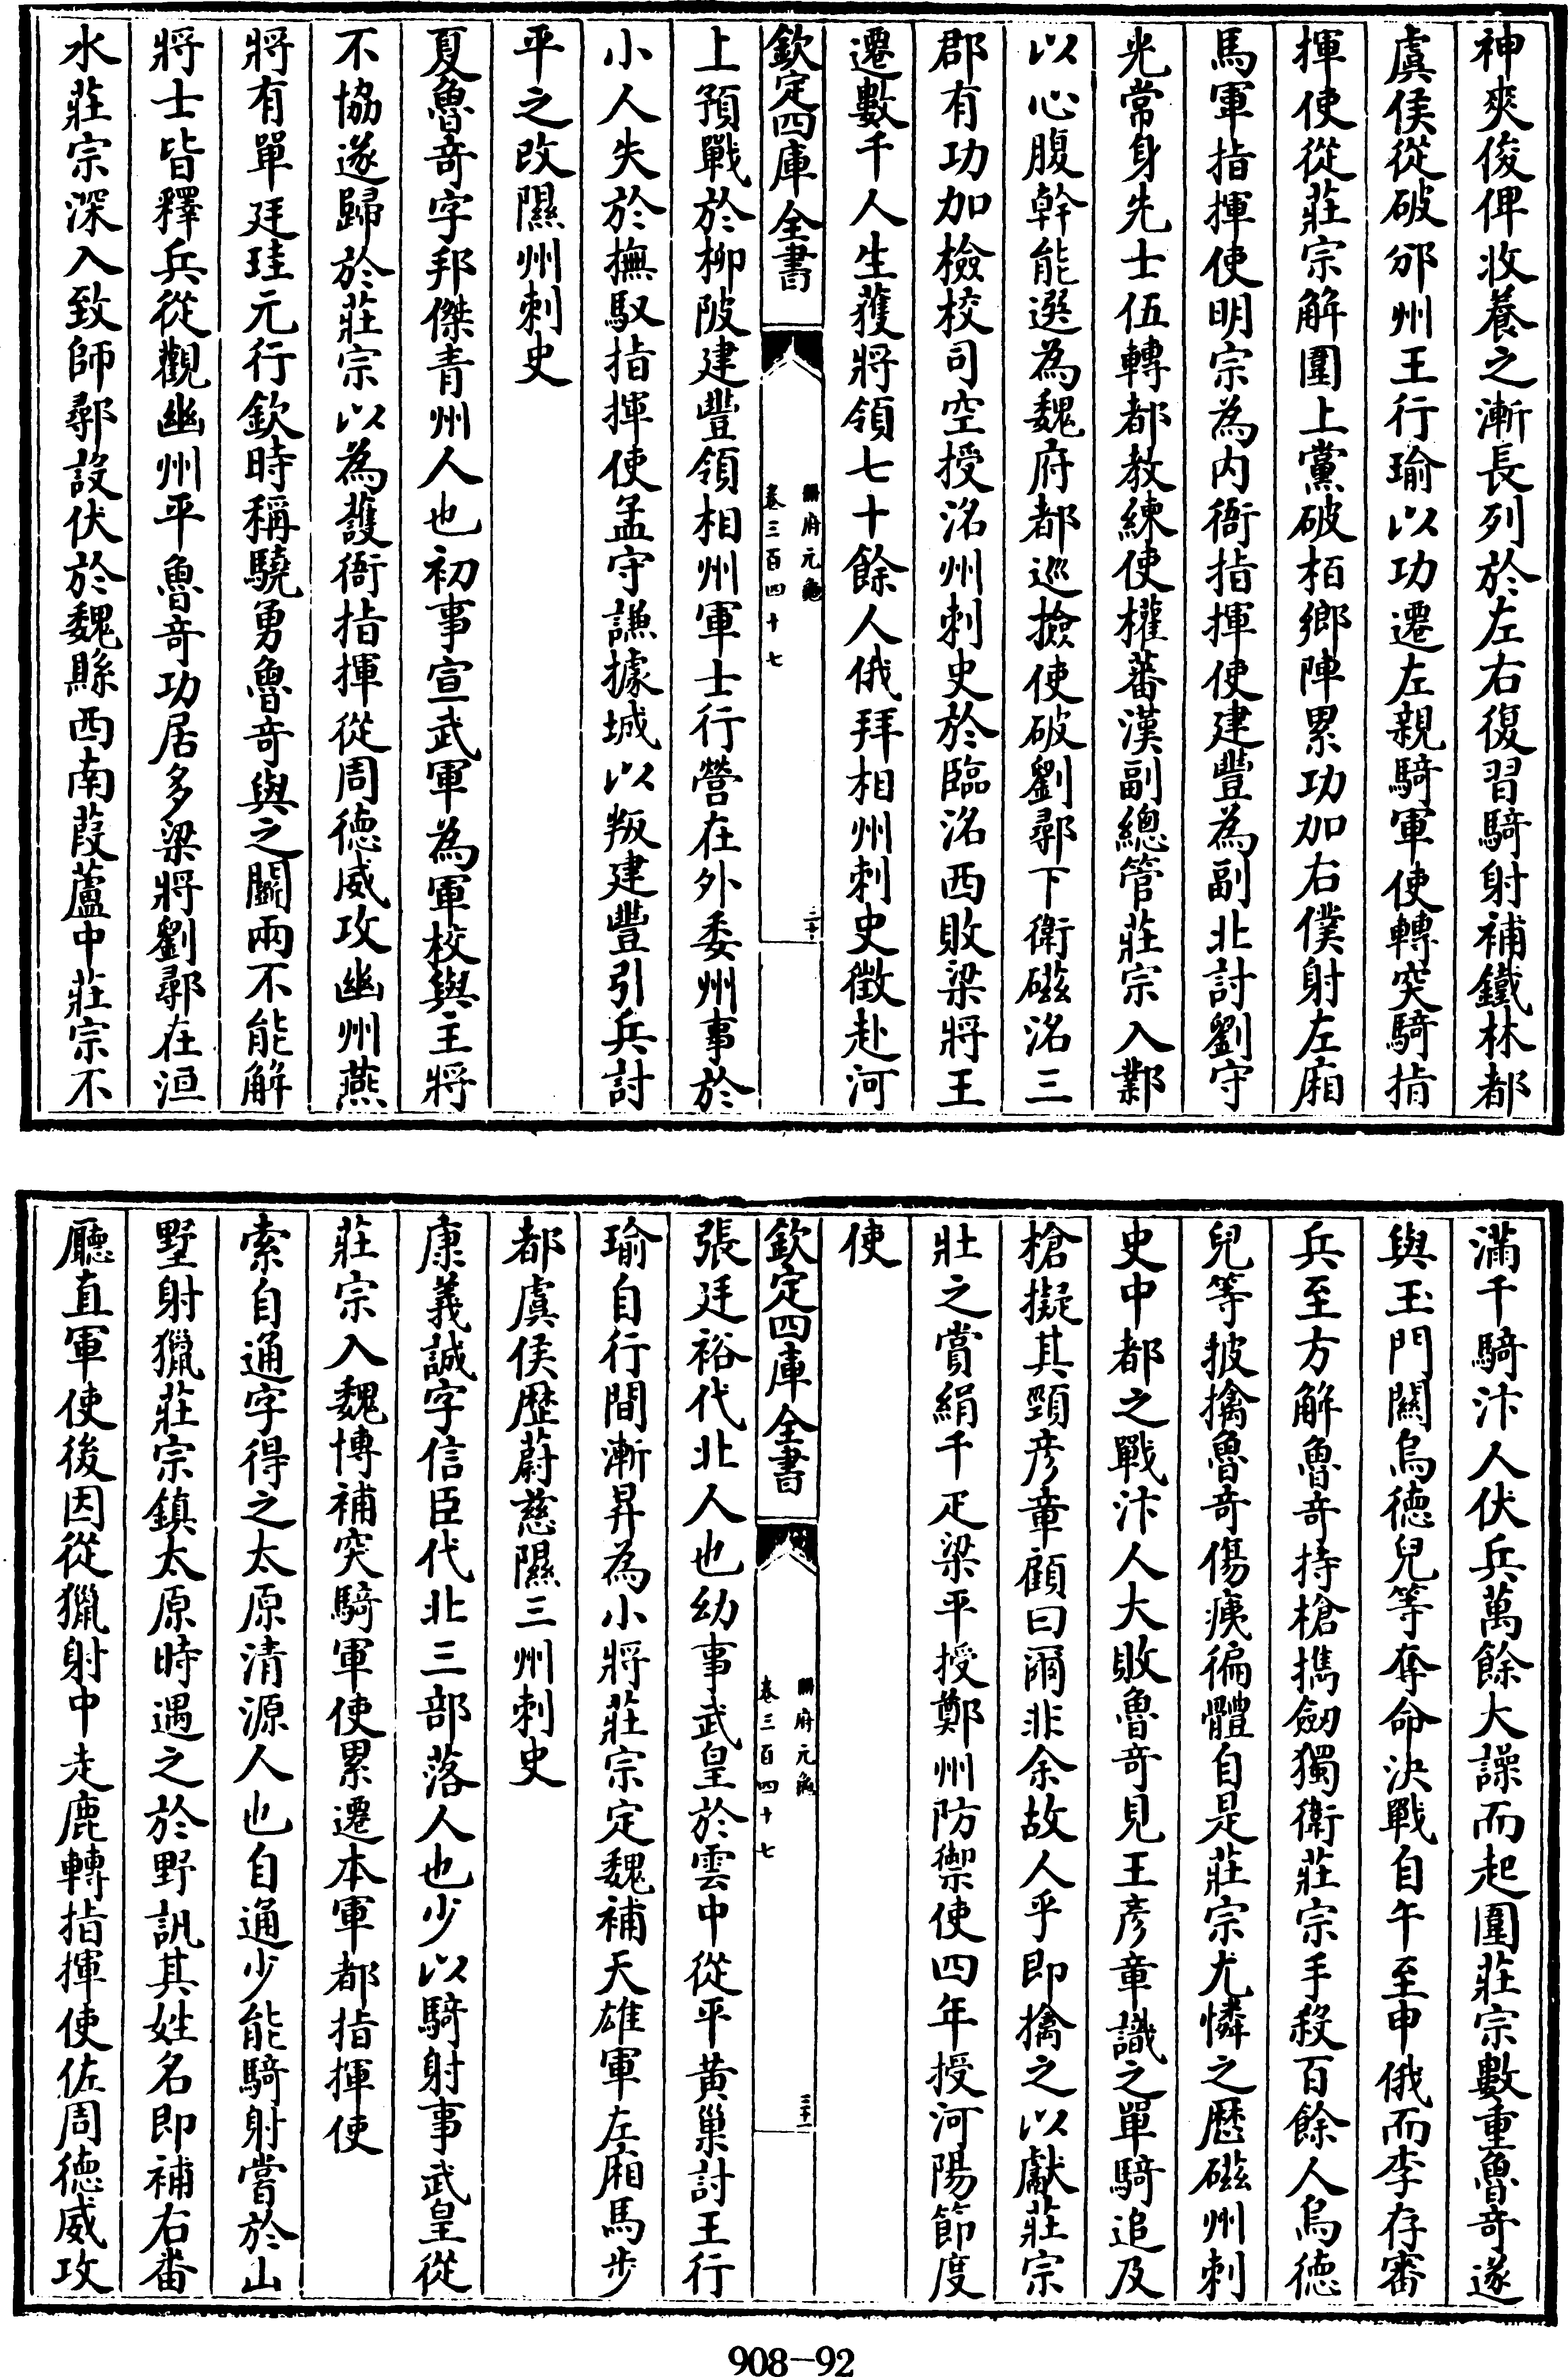 神爽俊俾收養之漸長列於左右復習騎射補鐵林都
虞侯從破邠州王行瑜以功遷左親騎軍使轉突騎指
揮使從莊宗解圍上黨破栢鄉陣累功加右僕射左廂
馬軍指揮使明宗為内衙指揮使建豐為副北討劉守
光常身先士伍轉都教練使權蕃漢副總管莊宗入鄴
以心腹幹能選為魏府都巡撿使破劉鄩下衛磁洺三
郡有功加檢校司空授洺州刺史於臨洺西敗梁將王
遷數千人生獲將領七十餘人俄拜相州刺史徵赴河
欽定四庫全書
冊府元龜
卷三百四十七
三十
上預戰於柳陂建豐領相州軍士行營在外委州事於
小人失於撫馭指揮使孟守謙據城以叛建豐引兵討
平之改隰州刺史
夏魯奇字邦傑青州人也初事宣武軍為軍校與主將
不協遂歸於莊宗以為護衙指揮從周德威攻幽州燕
將有單廷珪元行欽時稱驍勇魯奇與之鬭兩不能解
將士皆釋兵從觀幽州平魯奇功居多梁將劉鄩在洹
水莊宗深入致師鄩設伏於魏縣西南葭蘆中莊宗不
滿千騎汴人伏兵萬餘大譟而起圍莊宗數重魯奇遂
與王門關烏德兒等奪命決戰自午至申俄而李存審
兵至方解魯奇持槍攜劔獨衛莊宗手殺百餘人烏德
兒等披擒魯奇傷痍徧體自是莊宗尤憐之歷磁州刺
史中都之戰汴人大敗魯奇見王彦章識之單騎追及
槍擬其頸彦章顧曰爾非余故人乎即擒之以獻莊宗
壯之賞絹千疋梁平授鄭州防禦使四年授河陽節度
使
欽定四庫全書
冊府元龜
卷三百四十七
三十一
張廷裕代北人也幼事武皇於雲中從平黄巢討王行
瑜自行間漸昇為小將莊宗定魏補天雄軍左廂馬步
都虞侯歷蔚慈隰三州刺史
康義誠字信臣代北三部落人也少以騎射事武皇從
莊宗入魏博補突騎軍使累遷本軍都指揮使
索自通字得之太原清源人也自通少能騎射嘗於山
墅射獵莊宗鎮太原時遇之於野訊其姓名即補右番
廳直軍使後因從獵射中走鹿轉指揮使佐周德威攻
908-92